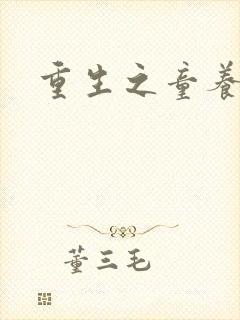 重生之童養
董三毛